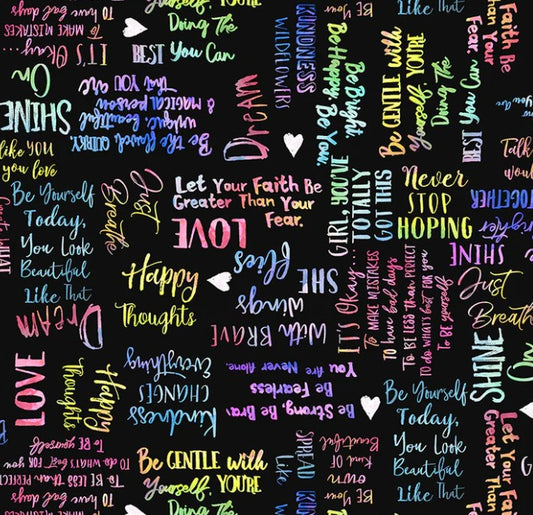 To have bad days
To MAKE MISTAKES
IT'S Okay...
Doing The
BEST You Can
KINDNESS
WILDFLOWER
Be Bright
Be Happy Be You.
Be GENTLE with
Yourself, YOU'RE
Doing The
BEST You Can
Like That
Faith Be
Than Your
Fear.
On
SHINE
that YOU are
& magical person
unique, beautiful
Be the flawed, QUIRKY,
Dream
like YOU
you love
Be Yourself
Today,
You Look
Beautiful
Like That
Just
Breathe
Let Your Faith Be
Greater Than Your
Fear.
LOVE
GIRL, YOU'VE
TOTALLY
GOT THIS
Never
STOP
HOPING
TOGETHER
SHINE
Just
Breathe
Dream
Happy
Thoughts
SHE
Flies
With BRAVE
Wings
IT'S Okay...
To MAKE MISTAKES
To have bad days
To BE LESS than PERFECT
TO do WHAT'S best FOR you
To BE yourself
SHINE
LOVE
Happy
Thoughts
Kindness
CHANGES
Everything
Be Strong, Be Brave
Be Fearless
You are Never Alone.
Be Yourself
Today,
You Look
Beautiful
Like That
Let Your Faith Be
Greater Than
To BE yourself
TO do WHAT'S best FOR you
To BE LESS than PERFECT
To have bad days
To MAKE MISTAKES
Be GENTLE with
Yourself, YOU'RE
Doing The
SPREAD
Like
KINDNESS
own
Kind OF
Beautiful